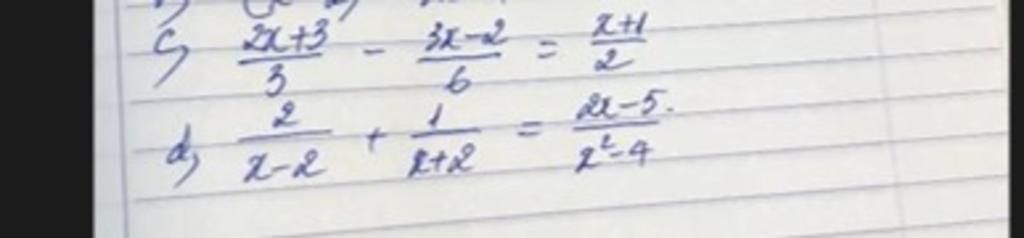 c, (2x+3)/3 - (3x-2)/6 = (x+1)/2
d, 2/(x-2) + 1/(x+2) = (2x-5)/(x²-4).